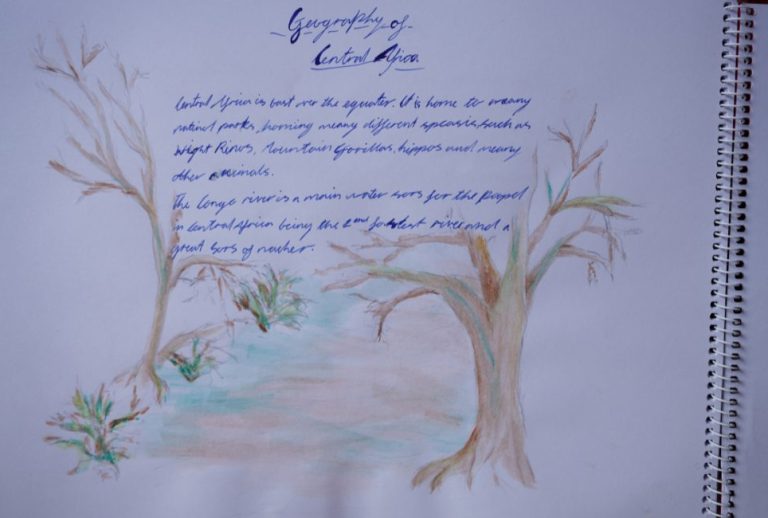 Geography of
Central Africa
Central Africa is bast over the equater. It is home to meany
natinol parks, homing meany different speasies, such as
wight Rinos, Mountain Gorillas, hippos and meany
other animals.
The Congo river is a main water sors for the Peopel
in central Africa being the 2nd fastest river and a
great sors of